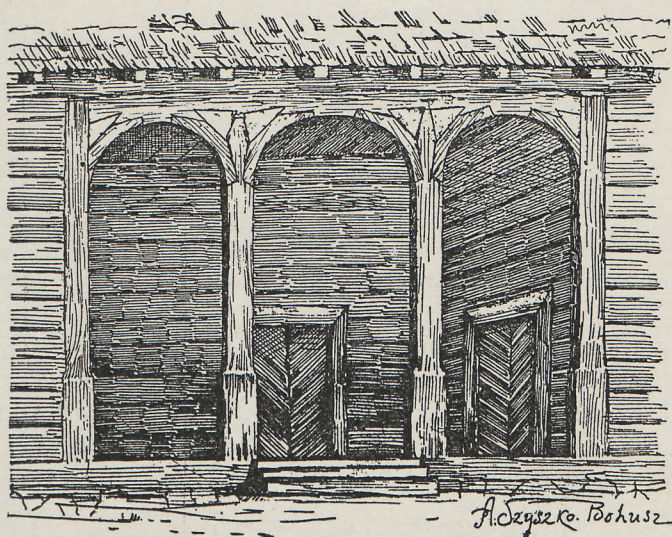 A. Szyszko. Bohusz